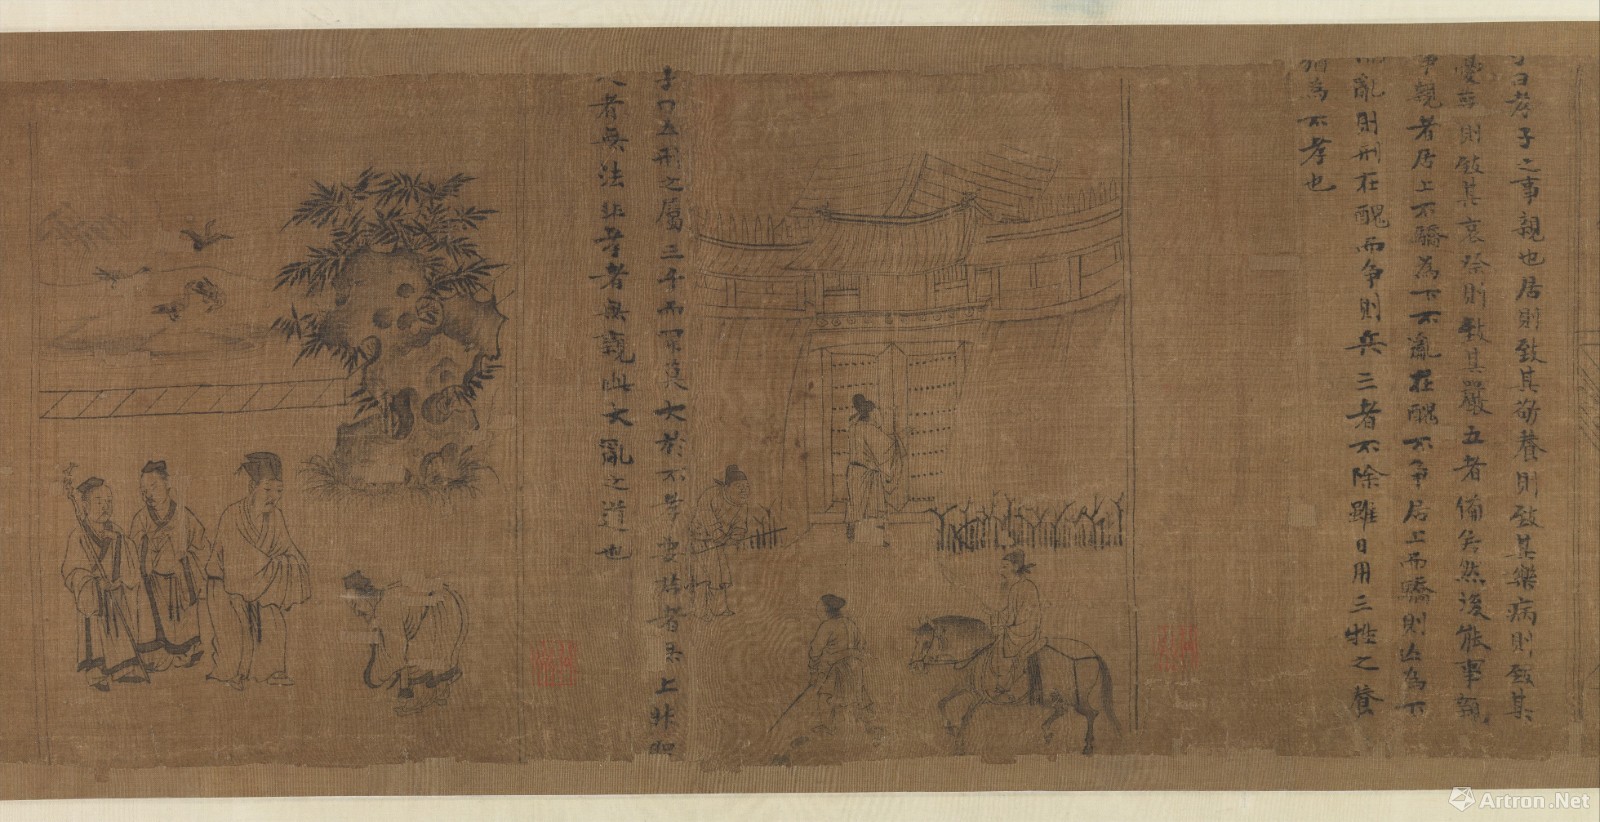 子曰孝子之事親也居則致其敬養則致其樂病則致其
憂喪則致其哀祭則致其嚴五者備矣然後能事親
事親者居上不驕為下不亂在醜不爭居上而驕則亡為下
而亂則刑在醜而爭則兵三者不除雖日用三牲之養
猶為不孝也
子曰五刑之屬三千而罪莫大於不孝要君者無上非聖
人者無法非孝者無親此大亂之道也
Artron.Net